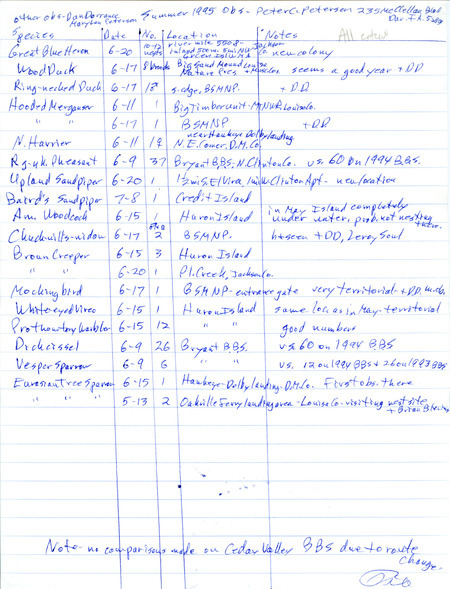 other obs - Dan Dorrance Summer 1995 Obs - Peter C. Petersen 235 McClellan Blvd
Mary Lou Petersen Dav. IA. 52803
Species Date No. Location Notes All entered
Great Blue Heron 6-20 10-12 nests river mile 550.8 - Jackson inland 500m. Green Island new colony
Wood Duck 6-17 8 broods Big Sand Mound Louisa Nature Pres. + Muscatine seems a good year + DD
Ring-necked Duck 6-17 1♂ s. edge, BSMNP. + DD
Hooded Merganser 6-11 1 Big Timber unit - M. NWR Louisa Co.
6-17 1 BSMNP + DD
N. Harrier 6-11 1♀ near Hawkeye Dolby landing N.E. Corner, D.M. Co.
Rg-nk Pheasant 6-9 37 Bryant BBS, N. Clinton Co. vs. 60 on 1994 BBS.
Upland Sandpiper 6-20 1 1/2 mi S. Elvira, 1 mi W. Clinton Apt. - new location
Baird's Sandpiper 7-8 1 Credit Island
Am. Woodcock 6-15 1 Huron Island in May Island completely under water, prob. not nesting there.
Chuck-will's-widow 6-17 2 BSMNP. h+seen + DD, Leroy Soul
Brown Creeper 6-15 3 Huron Island
" " 6-20 1 Pl. Creek, Jackson Co.
Mockingbird 6-17 1 BSMNP - entrance gate very territorial + DD, m. ob.
White-eyed Vireo 6-15 1 Huron Island same loc as in May - territorial
Prothonotary Warbler 6-15 12 " " good numbers
Dickcissel 6-9 26 Bryant BBS. vs. 60 on 1994 BBS
Vesper Sparrow 6-9 6 " " vs. 12 on 1994 BBS & 26 on 1993 BBS
Eurasian Tree Sparrow 6-15 1 Hawkeye - Dolby landing - D.M. Co. First obs. there
" " " 5-13 2 Oakville Ferry landing area - Louisa Co - visiting nest site + Brian Blevins
Note - no comparisons made on Cedar Valley BBS due to route change.
PCP